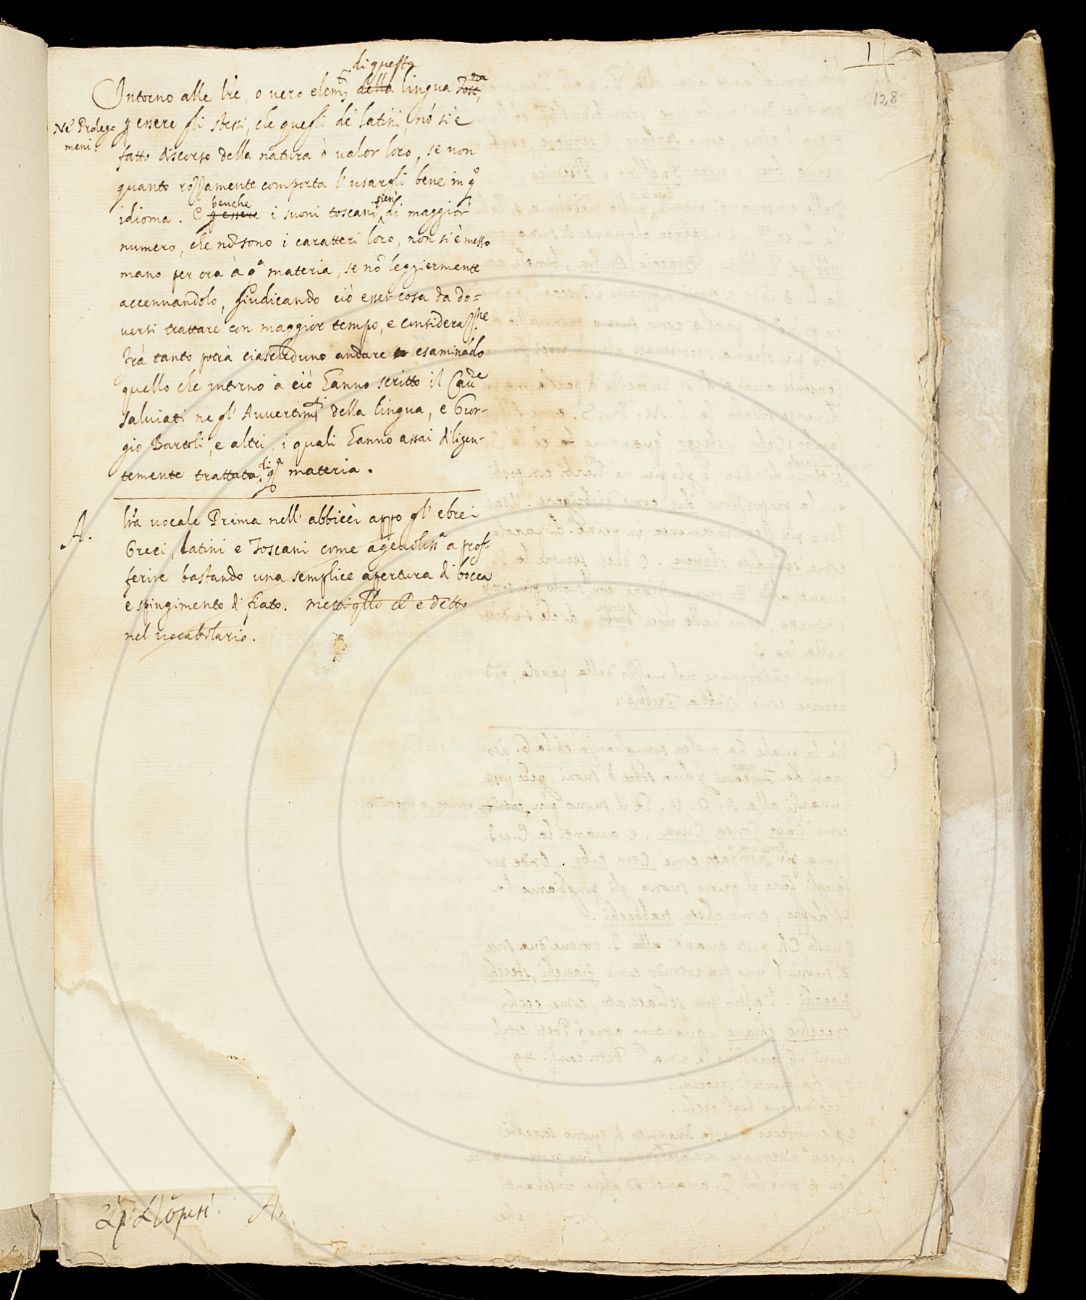 1
128
di questa
Intorno alle lr̃e, o vero elemti della lingua Tosc.na
Ne' Prolego
meni
ꝑ essere gli stessi, che quegli de' latini nõ si è
fatto discorso della natura o valor loro, se non
quanto rozzamente comporta l'usargli bene in qo
benche sieno
idioma. E ꝑ essere i suoni toscani di maggior
numero, che nõ sono i caratteri loro, non si è messo
mano per ora à qa materia, se nõ leggiermente
accennandolo, giudicando ciò esser cosa da do=
versi trattare con maggior tempo, e considerazne.
Trà tanto potrà ciascheduno andare esaminãdo
quello che intorno à ciò hanno scritto il Cave
Salviati negl' Avvertimti della lingua, e Gior-
gio Bartoli, e altri, i quali hanno assai diligen-
temente trattato di qa materia.
A.
lr̃a vocale Prima nell' abbiccì appo gl' ebrei
Greci, Latini e Toscani come agevolissa a prof-
ferire bastando una semplice apertura di bocca
e spingimento di fiato. e detto
nel vocabolario.
A.